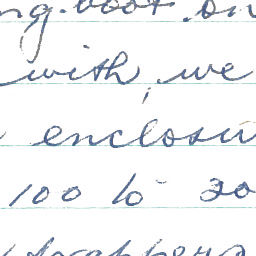 ng boot on
with, we
enclosu
100 to 20